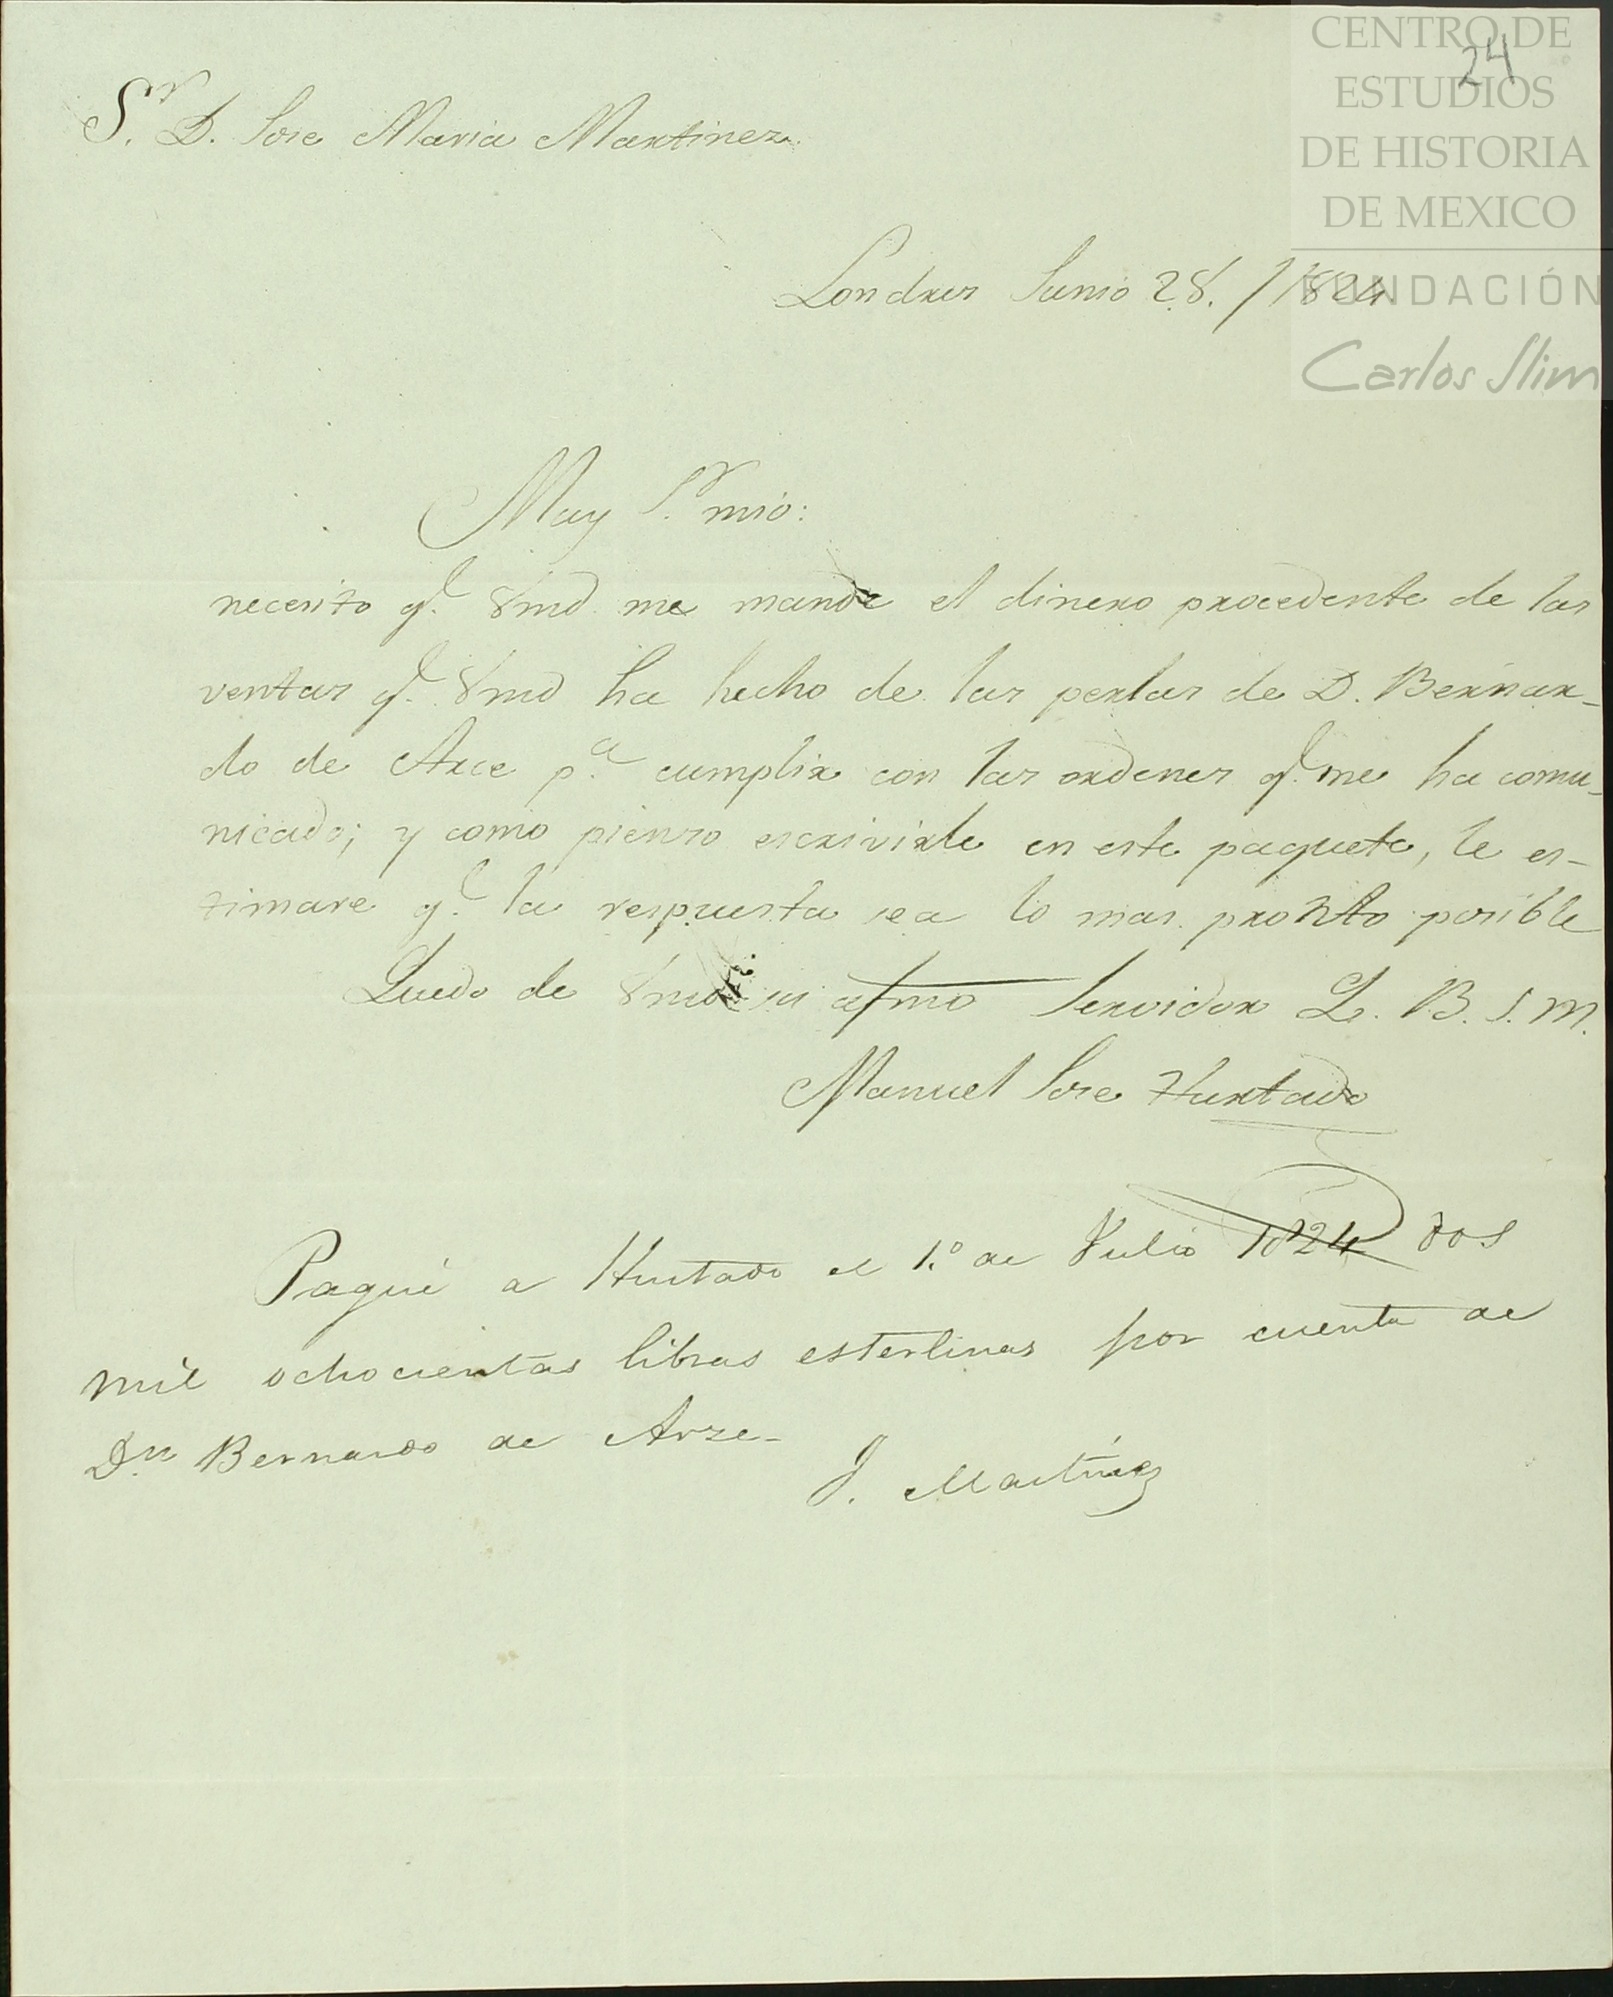 24
CENTRO DE
ESTUDIOS
DE HISTORIA
DE MEXICO
FUNDACIÓN
Carlos Slim
Sr. D. Jose Maria Martinez.
Londres Junio 28. / 1824
Muy Sr. mio:
necesito q.e Vmd. me mande el dinero procedente de las
ventas q.e Vmd ha hecho de las perlas de D. Bernar-
do de Arce p.a cumplir con las ordenes q.e me ha comu-
nicado; y como pienso escrivirle en este paquete, le es-
timare q.e la respuesta sea lo mas pronto posible
Quedo de Vmd. su afmo Servidor Q. B. S. M.
Manuel Jose Hurtado
Pagué a Hurtado el 1.o de Julio 1824 dos
mil ochocientas libras esterlinas por cuenta de
Dn Bernardo de Arze-
J. Martínez